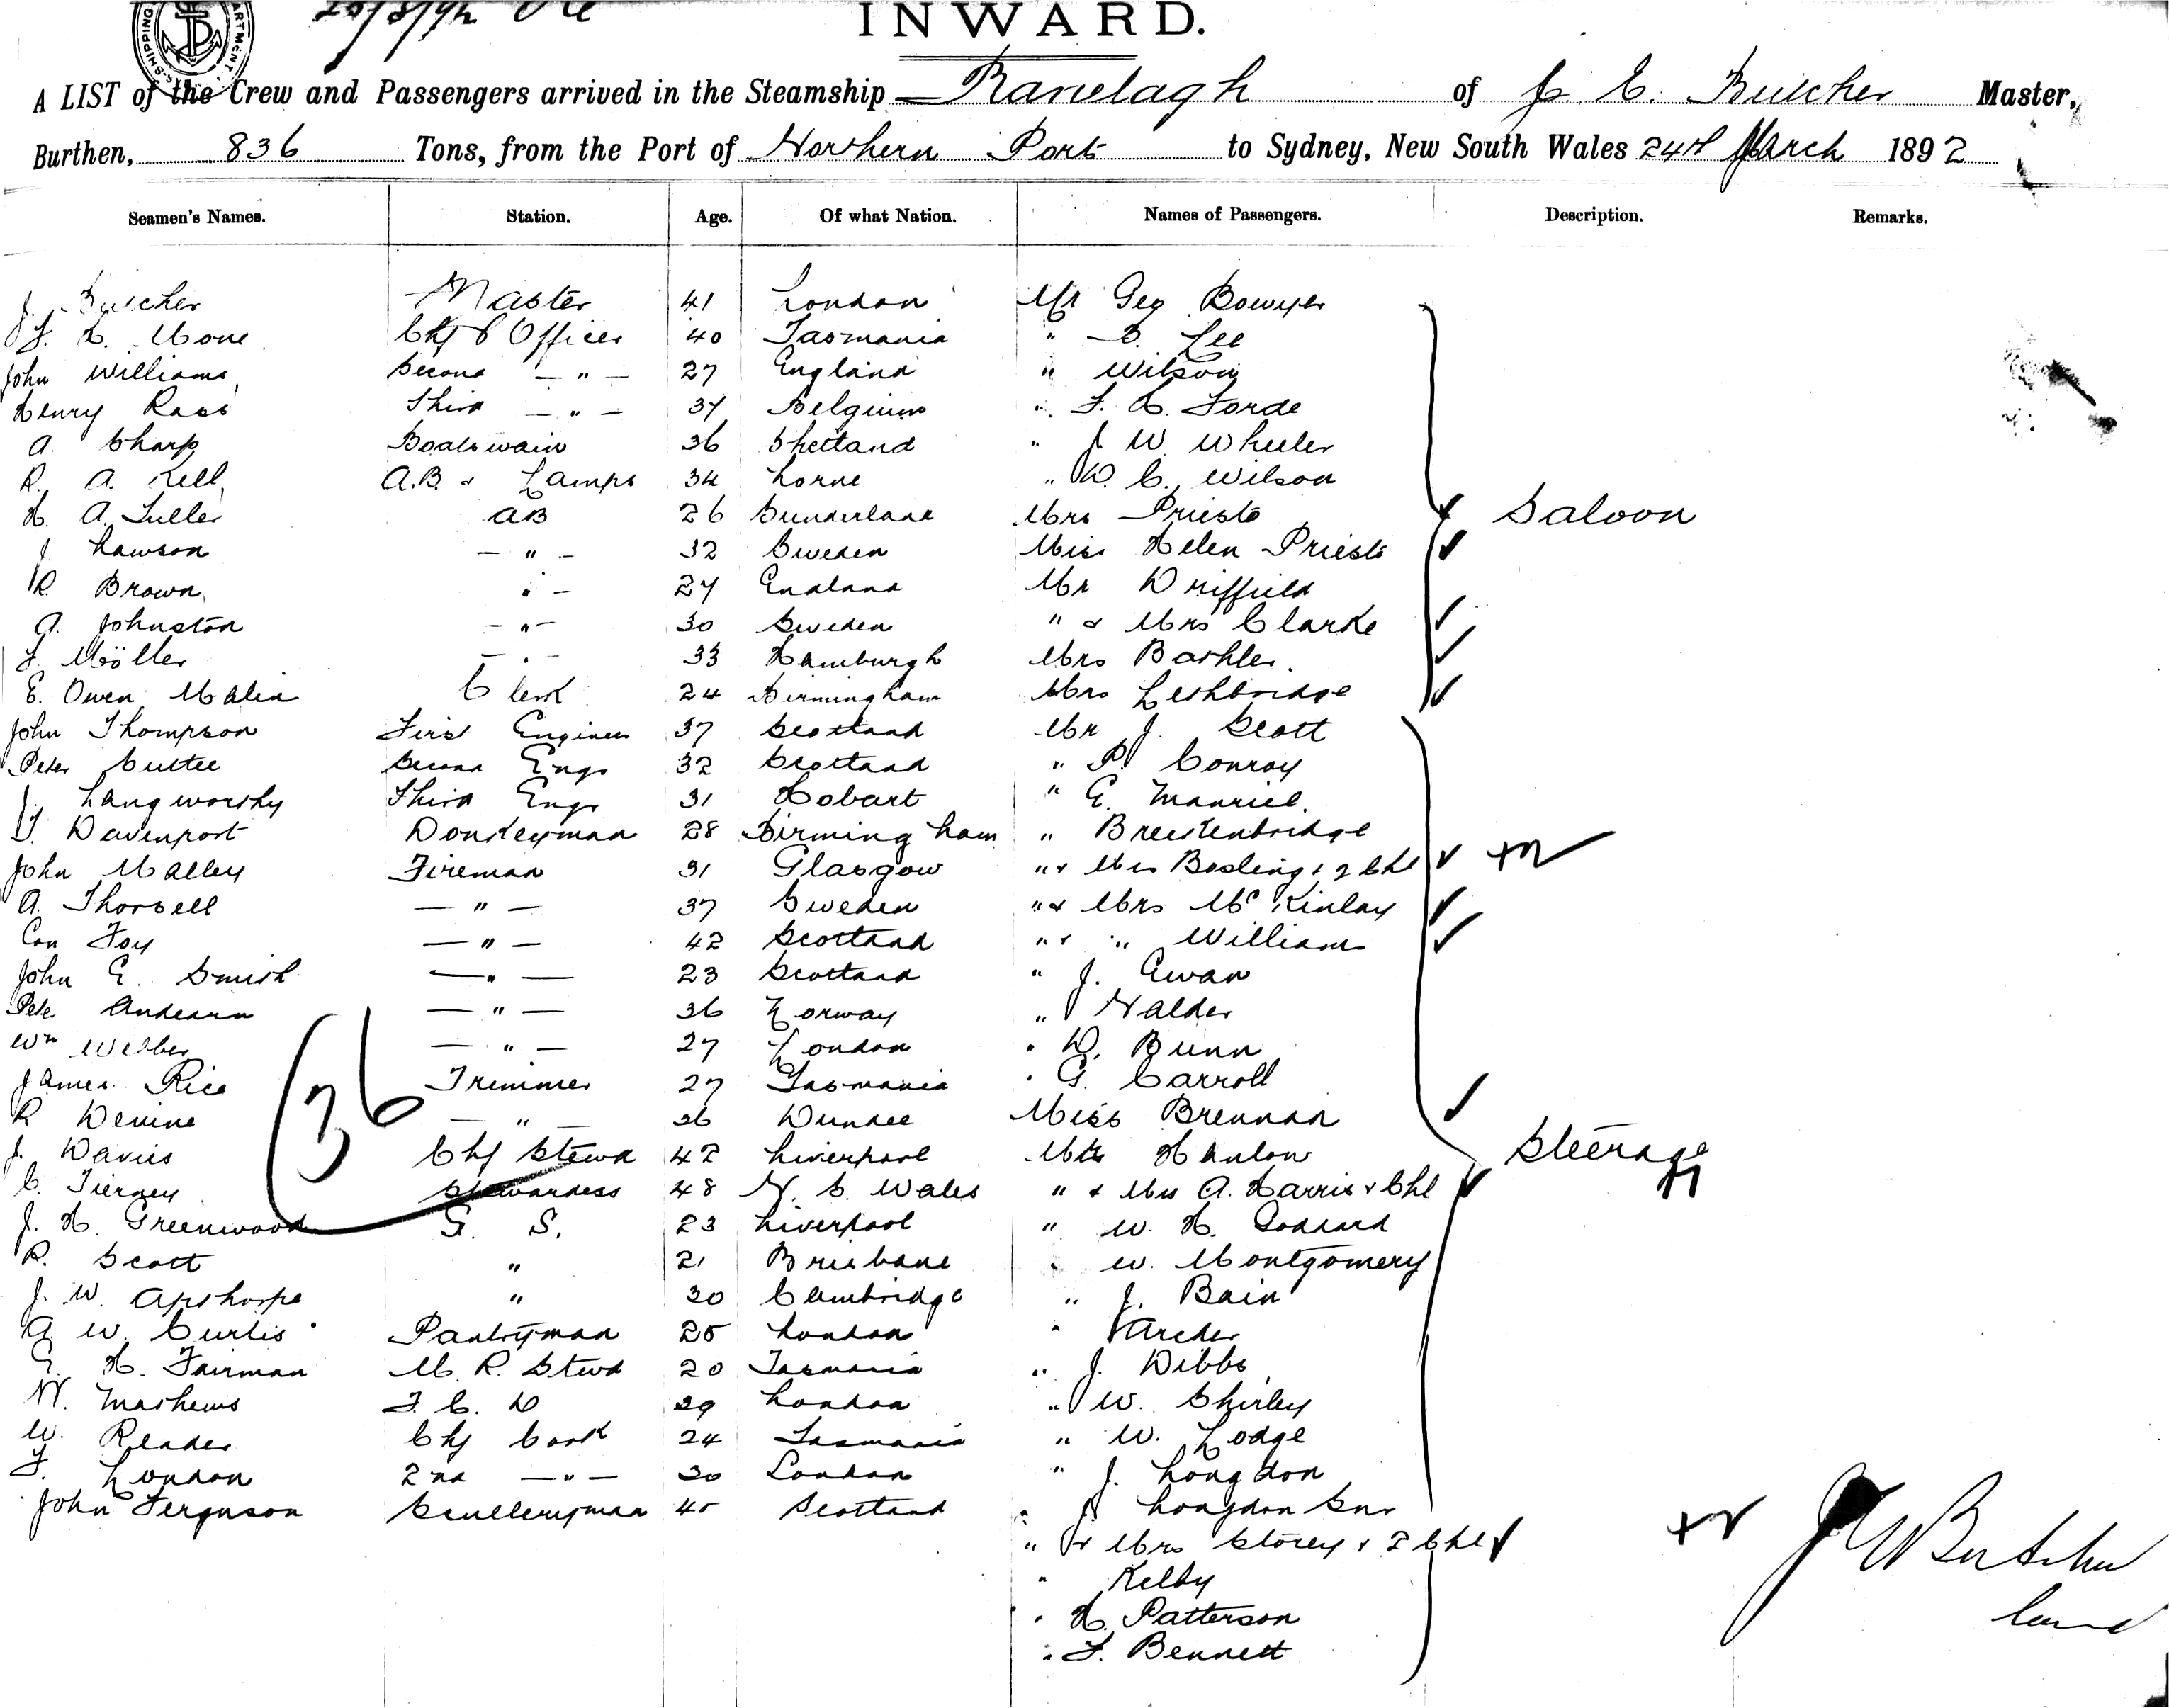 25/3/92
SHIPPING DEPARTMENT
INWARD.
A LIST of the Crew and Passengers arrived in the Steamship Ranelagh of J. E. Butcher Master,
Burthen, 836 Tons, from the Port of Northern Ports to Sydney, New South Wales 24th March 1892
Seamen's Names. Station. Age. Of what Nation. Names of Passengers. Description. Remarks.
J. Butcher Master 41 London Mr Geo Bowyer
Mone Chf Officer 40 Tasmania " Lee
John Williams Second — " — 27 England " Wilson
Henry Rass Third — " — 37 Belgium " F. H. Forde
A. Sharp Boatswain 36 Shetland " J W Wheeler
R. A. Kell A.B. & Lamps 34 Lorne " W. C. Wilson
H. A. Fuller AB 26 Sunderland Mrs Priest Saloon
J. Lawson — " — 32 Sweden Miss Helen Priest
R. Brown " — 27 England Mr Driffield
A. Johnston — " — 30 Sweden " & Mrs Clarke
F. Möller — " — 33 Hamburgh Mrs
E. Owen Malin Clerk 24 Birmingham Mrs Lethbridge
John Thompson First Engineer 37 Scotland Mr J. Scott
Peter Suttee Second Engr 32 Scotland " P. Conroy
J. Langworthy Third Engr 31 Hobart " E.
T. Davenport Donkeyman 28 Birmingham " Breckenbridge
John Malley Fireman 31 Glasgow " & Mrs Bosling & 2 Chl
A. Thorsell — " — 37 Sweden " & Mrs McKinlay
Con Foy — " — 42 Scotland " & " Williams
John E. Smith — " — 23 Scotland " J. Ewan
Peter — " — 36 Norway " Nalder
Wm Webber — " — 27 London " D. Bunn
James Rice Trimmer 27 Tasmania " G. Carroll
36
R Devine — " — 26 Dundee Miss Brennan
J. Davies Chf Stewd 42 Liverpool Mr Hanlon Steerage
C. Tierney Stewardess 48 N. S. Wales " & Mrs A. Harris & Chl
J. H. Greenwood G. S. 23 Liverpool " W. H. Goddard
R. Scott " 21 Brisbane " W. Montgomery
J. W. Apthorpe " 20 Cambridge " J. Bain
A W. Curtis Pantryman 25 London " Archer
G. H. Fairman M. R. Stwd 20 Tasmania " J. Dibbs
W. Mathews F. C. D 29 London " W. Shirley
W. Reader Chf Cook 24 Tasmania " W. Lodge
F. London 2nd — " — 30 London " J. Longdon
John Ferguson Sculleryman 45 Scotland " J. Longdon Snr
" & Mrs Storey & 2 Chl
" Kelby
" H. Patterson
" F. Bennett
J Butcher